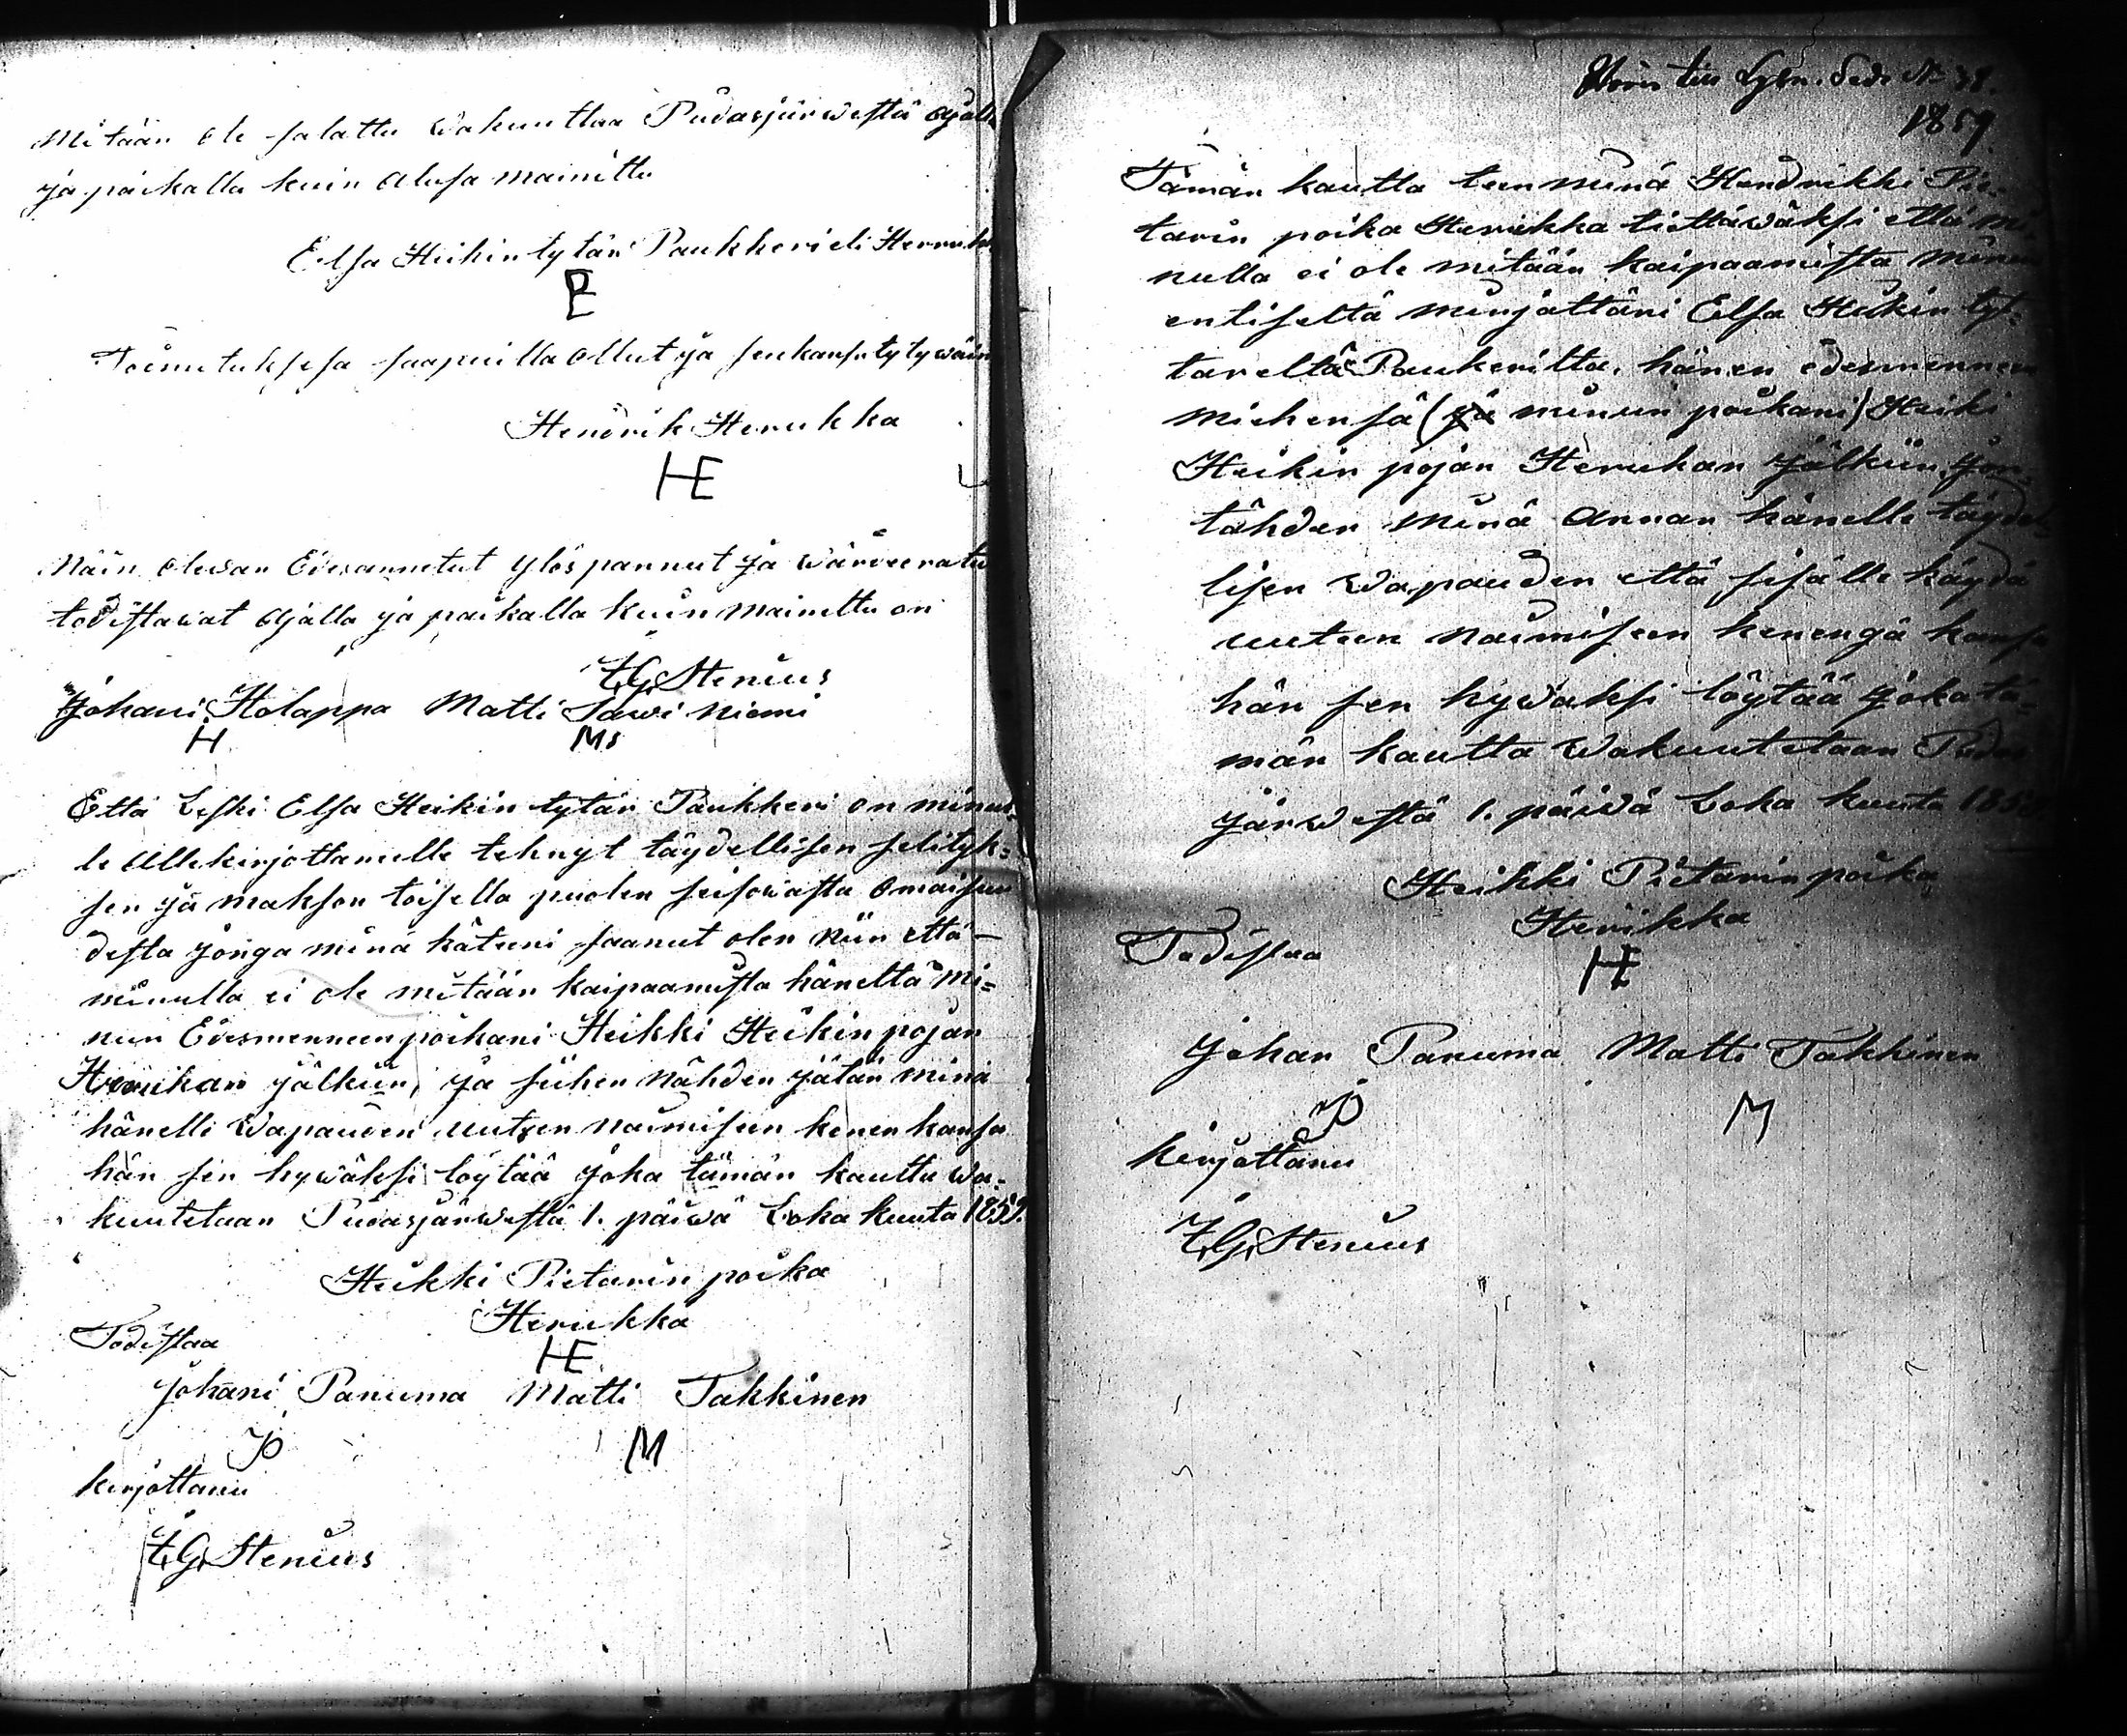 Mitään ole salattu wakuuttaa Pudasjärwestä ajalla
ja paikalla kuin alusa mainittu
Elsa Heikin tytär Paukkeri eli Herukka
E
Toimituksesa saapuilla ollut ja sen kansa tytywäin
Hendrik Herukka
HE
Näin olewan Edesannetut ylös pannut ja wärdeeratu
todistawat ajalla ja paikalla kuin mainittu on
Z.G. Stenius
Johani Holappa Matti Sawi niemi
H Ms
Että Leski Elsa Heikin tytär Paukkeri on minul-
le Allekirjottanelle tehnyt täydellisen selityk=
sen ja makson toisella puolen seisowasta omaisuu
desta jonga minä käteeni saanut olen niin että —
minulla ei ole mitään kaipaamista häneltä mi=
nun Edesmenneen poikani Heikki Heikin pojan
Herukan jälkiin, ja siihen nähden jätän minä
hänelle wapauden uutteen naimiseen kenen kansa
hän sen hywäksi löytää joka tämän kautta wa-
kuutetaan Pudasjärwestä 1. päiwä Loka kuuta 1859.
Heikki Pietarin poika
Herukka
Todistaa HE
Johani Panuma Matti Takkinen
JP M
kirjottanu
Z.G. Stenius
1859
Tämän kautta teen minä Hendrikki Pie-
tarin poika Herukka tiettäwäksi että mi-
nulla ei ole mitään kaipaamista minun
entiseltä minjältäni Elsa Heikin tyt=
täreltä Paukerilta, hänen edesmennen
miehensä (ja minun poikani) Heiki
Heikin pojan Herukan jälkiin, jon-
tähden minä annan hänelle täydel-
lisen wapauden että sisälle käydä
uuteen naimiseen kenengä kansa
hän sen hywäksi löytää joka tä-
män kautta wakuutetaan Pudas
järwestä 1. päiwä Loka kuuta 1859
Heikki Pietarin poika
Herukka
Todistaa HE
Johan Panuma Matti Takkinen
JP M
kirjottanu
Z.G. Stenius